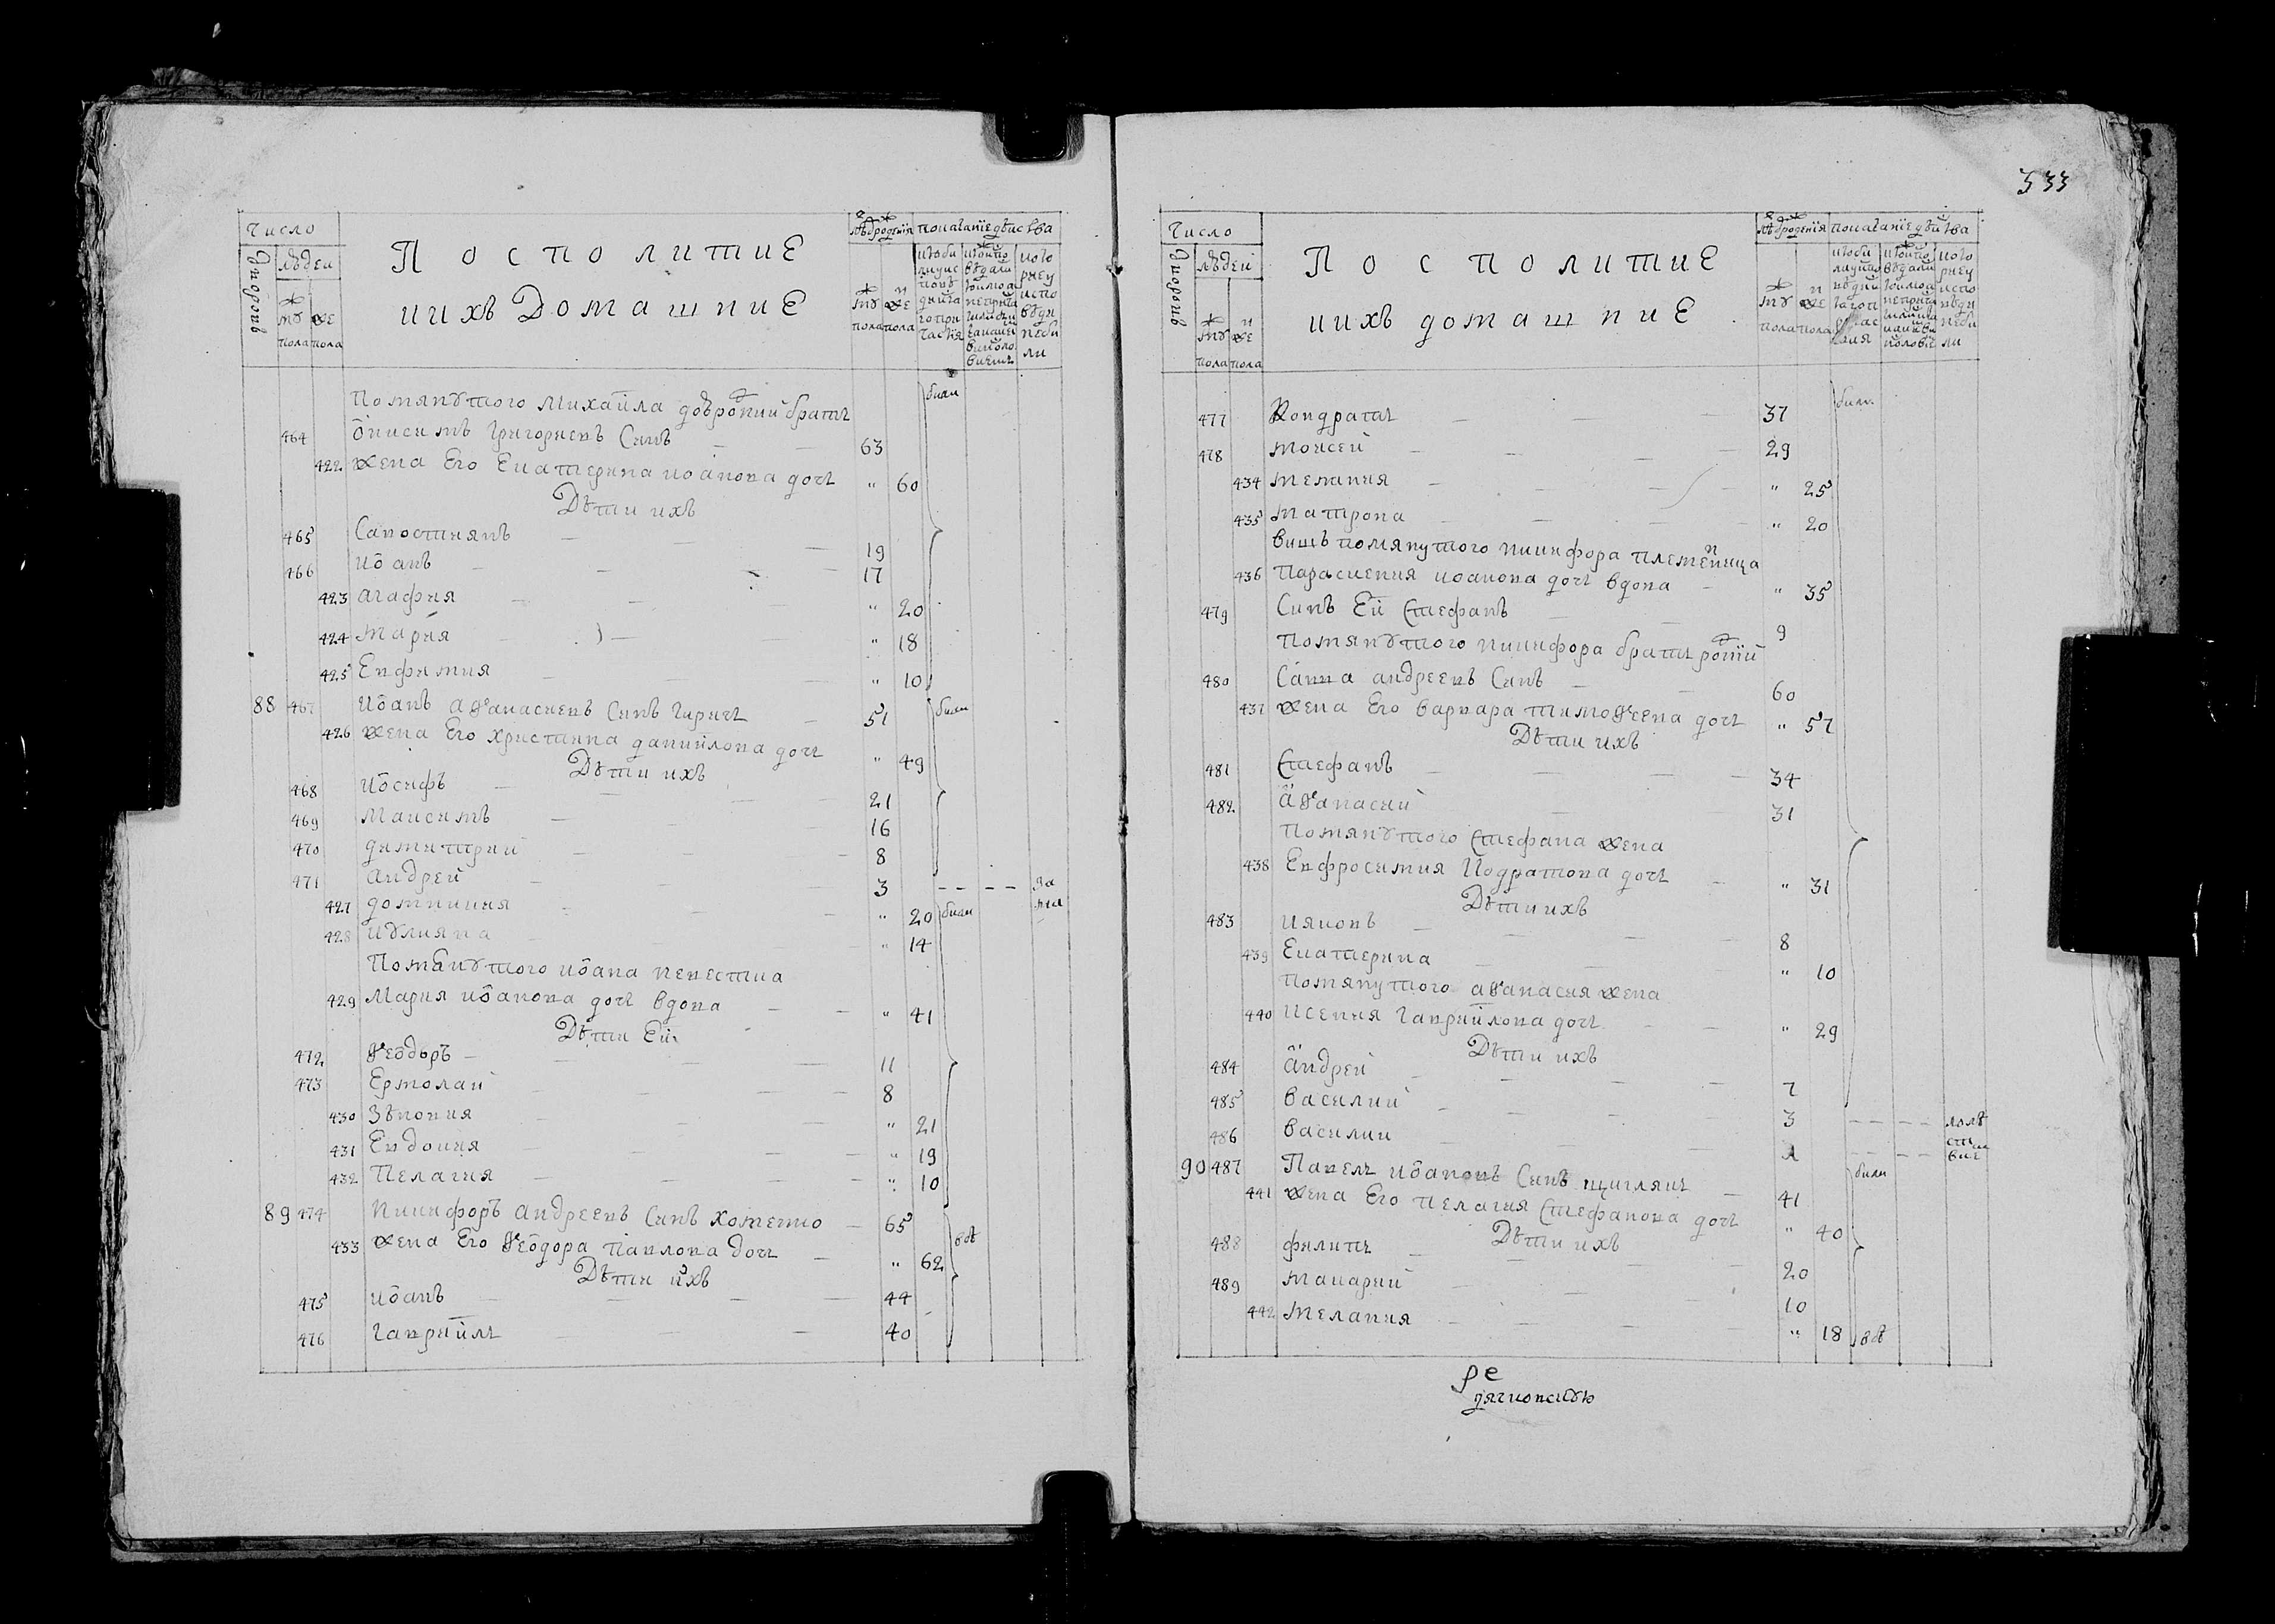 Число
Дворовъ
людей
муж пола
же пола
Посполитие
и ихъ Домашние
лѣ рождения
муж пола
же пола
показание действа
Помянутого Михайла двоюродний братъ
464 Онисимъ Григориевъ Синъ 63
422 Жена Его Екатерина Иоанова дочь " 60
били
Дѣти ихъ
465 Савостиянъ 19
466 Иоанъ 17
423 Агафия " 20
424 Мария " 18
425 Евфимия " 10
88 467 Иоанъ Афанасиевъ Синъ Гиричъ 51 били
426 Жена Его Христина Даниилова дочь " 49
Дѣти ихъ
468 Иосифъ 21
469 Максимъ 16
470 Димитрий 8
471 Андрей 3
427 Домникия " 20 били
428 Иулияна " 14
Помянутого Иоана невестка
429 Мария Иоанова дочь вдова " 41
Дѣти Ей
472 Феодоръ 11
473 Ермолай 8
430 Зѣновия " 21
431 Евдокия " 19
432 Пелагия " 10
89 474 Никифоръ Андреевъ Синъ Хоменко 65
433 Жена Его Феодора Павлова дочь " 62
Дѣти ихъ
475 Иоанъ 44
476 Гавриилъ 40
533
Число
Дворовъ
людей
муж пола
же пола
Посполитие
и ихъ домашние
лѣ рождения
муж пола
же пола
показание действа
477 Кондратъ 37 били
478 Моисей 29
434 Мелания " 25
435 Матрона " 20
Вишъ помянутого Никифора племеница
436 Параскевия Иоанова дочь вдова " 35
479 Синъ Ей Стефанъ 9
Помянутого Никифора братъ родний
480 Савва Андреевъ Синъ 60
437 Жена Его Варвара Тимофеева дочь " 57
Дѣти ихъ
481 Стефанъ 34
482 Афанасий 31
Помянутого Стефана жена
438 Евфросимия Кодратова дочь " 31
Дѣти ихъ
483 Ияковъ 8
439 Екатерина " 10
Помянутого Афанасия жена
440 Ксения Гавриилова дочь " 29
Дѣти ихъ
484 Андрей 7
485 Василий 3
486 Василии
90 487 Павелъ Иоановъ Синъ Щиглякъ 41 били
441 Жена Его Пелагия Стефанова дочь " 40
Дѣти ихъ
488 Филипъ 20
489 Макарий 10
442 Мелания " 18